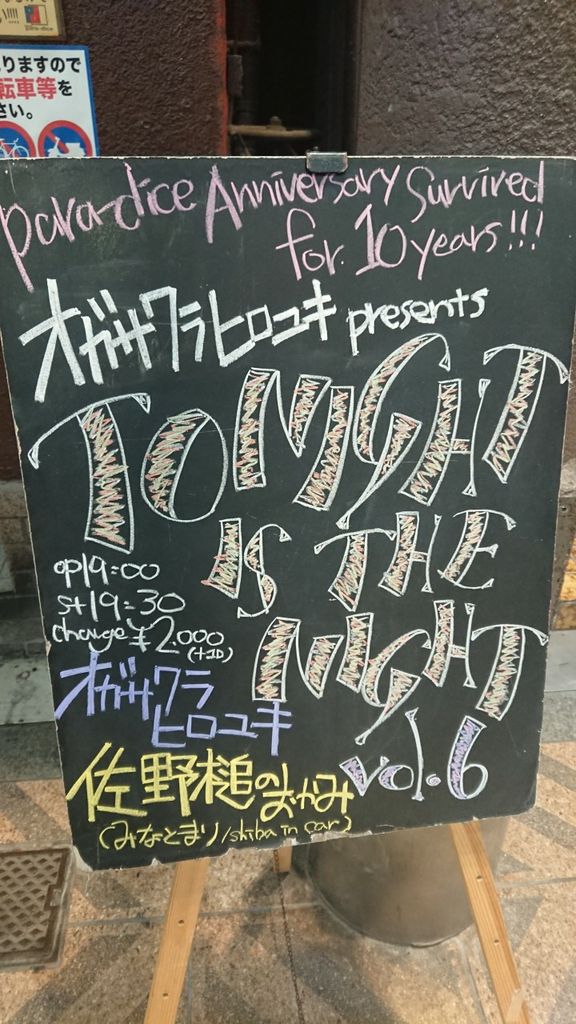 りますので
転車等を
さい。
para-dice Anniversary Survived
for 10 years!!!
オガサワラヒロユキ presents
TONIGHT
IS THE
NIGHT
vol.6
op19:00
st19:30
charge ¥2.000
(+1D)
オガサワラ
ヒロユキ
佐野槌のおかみ
(みなとまり/shiba in car)